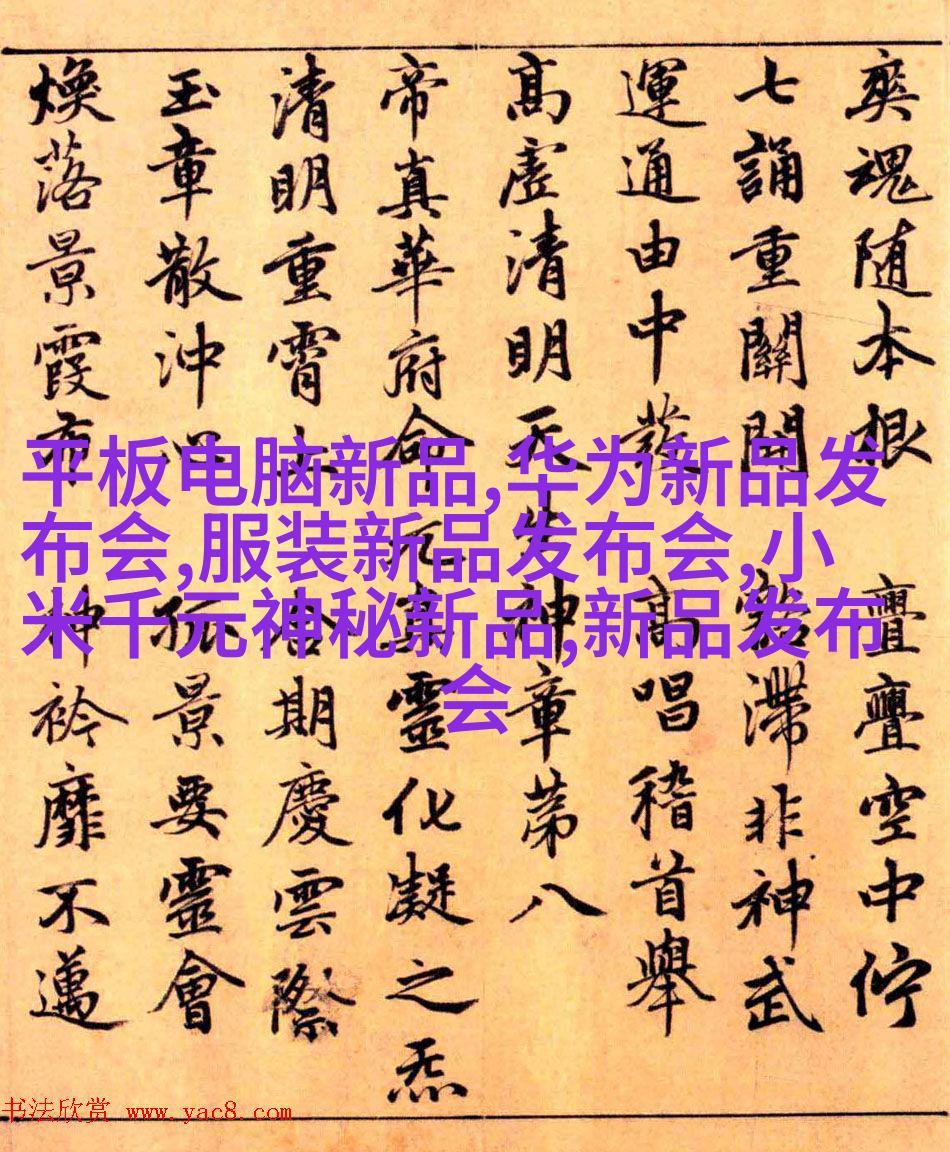 奕魂随本根亹亹空中佇
七誦重關開豁滯非神武
運通由中發高唱稽首舉
高虛清明天生神章第八
帝真華府命元真靈化凝之炁
清明重霄合期慶雲際
玉章散沖心孤景要靈會
煥落景霞布神衿靡不邁
平板电脑新品,华为新品发
布会,服装新品发布会,小
米千元神秘新品,新品发布
会
书法欣赏 www.yac8.com